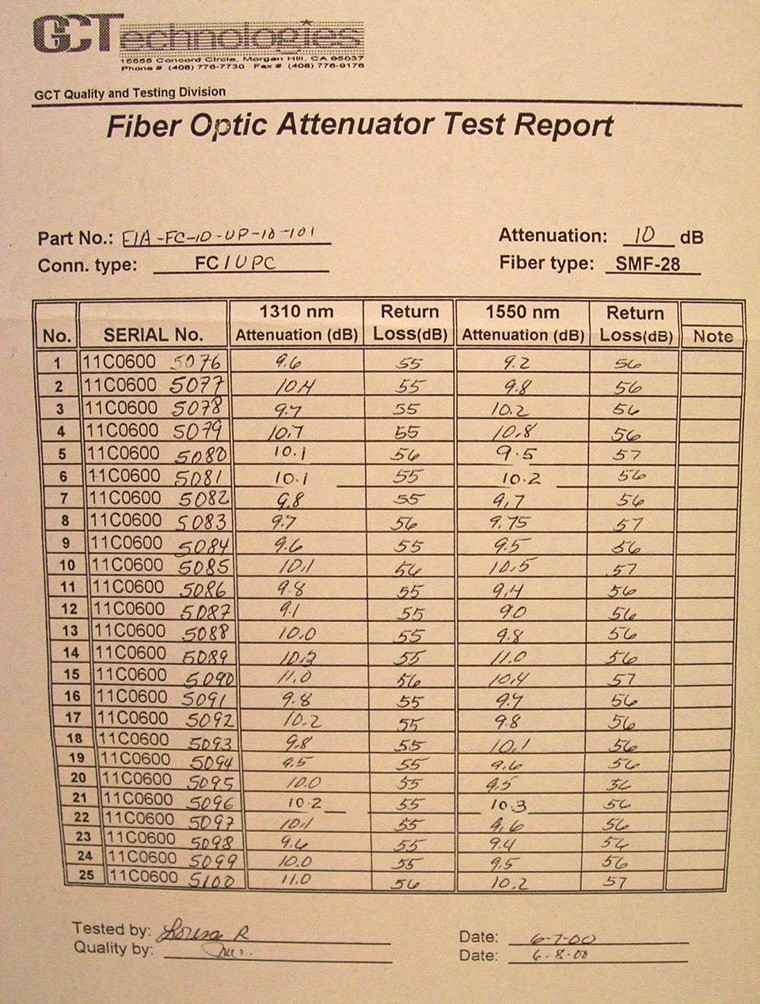 GCTechnologies
15555 Concord Circle, Morgan Hill, CA 95037
Phone # (408) 776-7730 Fax # (408) 776-9176
GCT Quality and Testing Division
Fiber Optic Attenuator Test Report
Part No.: FIA-FC-10-UP-10-101 Attenuation: 10 dB
Conn. type: FC/UPC Fiber type: SMF-28
1310 nm Return 1550 nm Return
No. SERIAL No. Attenuation (dB) Loss(dB) Attenuation (dB) Loss(dB) Note
1 11C0600 5076 9.6 55 9.2 56
2 11C0600 5077 10.4 55 9.8 56
3 11C0600 5078 9.7 55 10.2 56
4 11C0600 5079 10.7 55 10.8 56
5 11C0600 5080 10.1 56 9.5 57
6 11C0600 5081 10.1 55 10.2 56
7 11C0600 5082 9.8 55 9.7 56
8 11C0600 5083 9.7 56 9.75 57
9 11C0600 5084 9.6 55 9.5 56
10 11C0600 5085 10.1 56 10.5 57
11 11C0600 5086 9.8 55 9.4 56
12 11C0600 5087 9.1 55 9.0 56
13 11C0600 5088 10.0 55 9.8 56
14 11C0600 5089 10.2 55 11.0 56
15 11C0600 5090 11.0 56 10.4 57
16 11C0600 5091 9.8 55 9.7 56
17 11C0600 5092 10.2 55 9.8 56
18 11C0600 5093 9.8 55 10.1 56
19 11C0600 5094 9.5 55 9.6 56
20 11C0600 5095 10.0 55 9.5 56
21 11C0600 5096 10.2 55 10.3 56
22 11C0600 5097 10.1 55 9.6 56
23 11C0600 5098 9.6 55 9.4 56
24 11C0600 5099 10.0 55 9.5 56
25 11C0600 5100 11.0 56 10.2 57
Tested by: Lorisa R Date: 6-7-00
Quality by: Date: 6-8-00